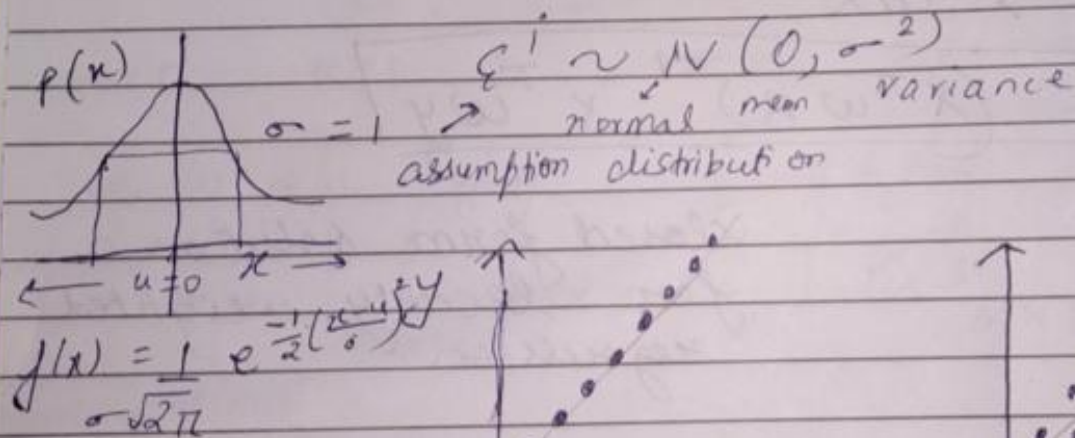 p(x)
εⁱ ~ N (0, σ²)
σ = 1
normal mean variance
assumption distribution
u = 0 x
f(x) = 1/(σ√2π) e^(-1/2 (x-u/σ)²)
y